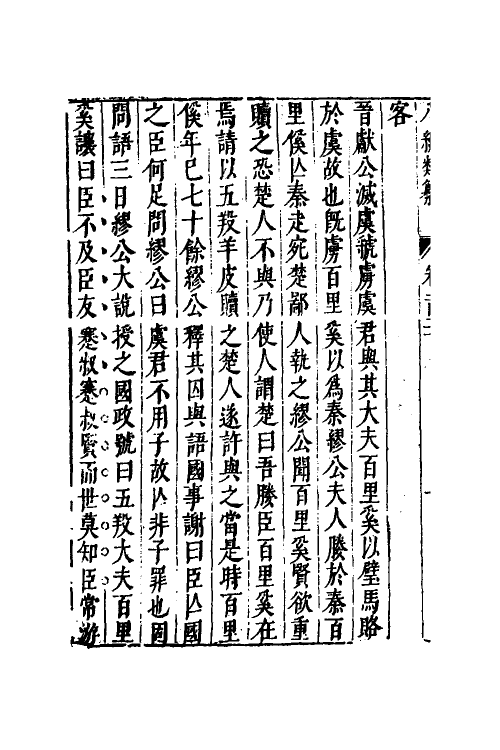 客
晉獻公滅虞虢虜虞君與其大夫百里奚以璧馬賂
於虞故也旣虜百里奚以爲秦繆公夫人媵於秦百
里傒亾秦走宛楚鄙人執之繆公聞百里奚賢欲重
贖之恐楚人不與乃使人謂楚曰吾媵臣百里奚在
焉請以五羖羊皮贖之楚人遂許與之當是時百里
傒年已七十餘繆公釋其囚與語國事謝曰臣亾國
之臣何足問繆公曰虞君不用子故亾非子罪也固
問語三日繆公大說授之國政號曰五羖大夫百里
奚讓曰臣不及臣友蹇叔蹇叔賢而世莫知臣常游